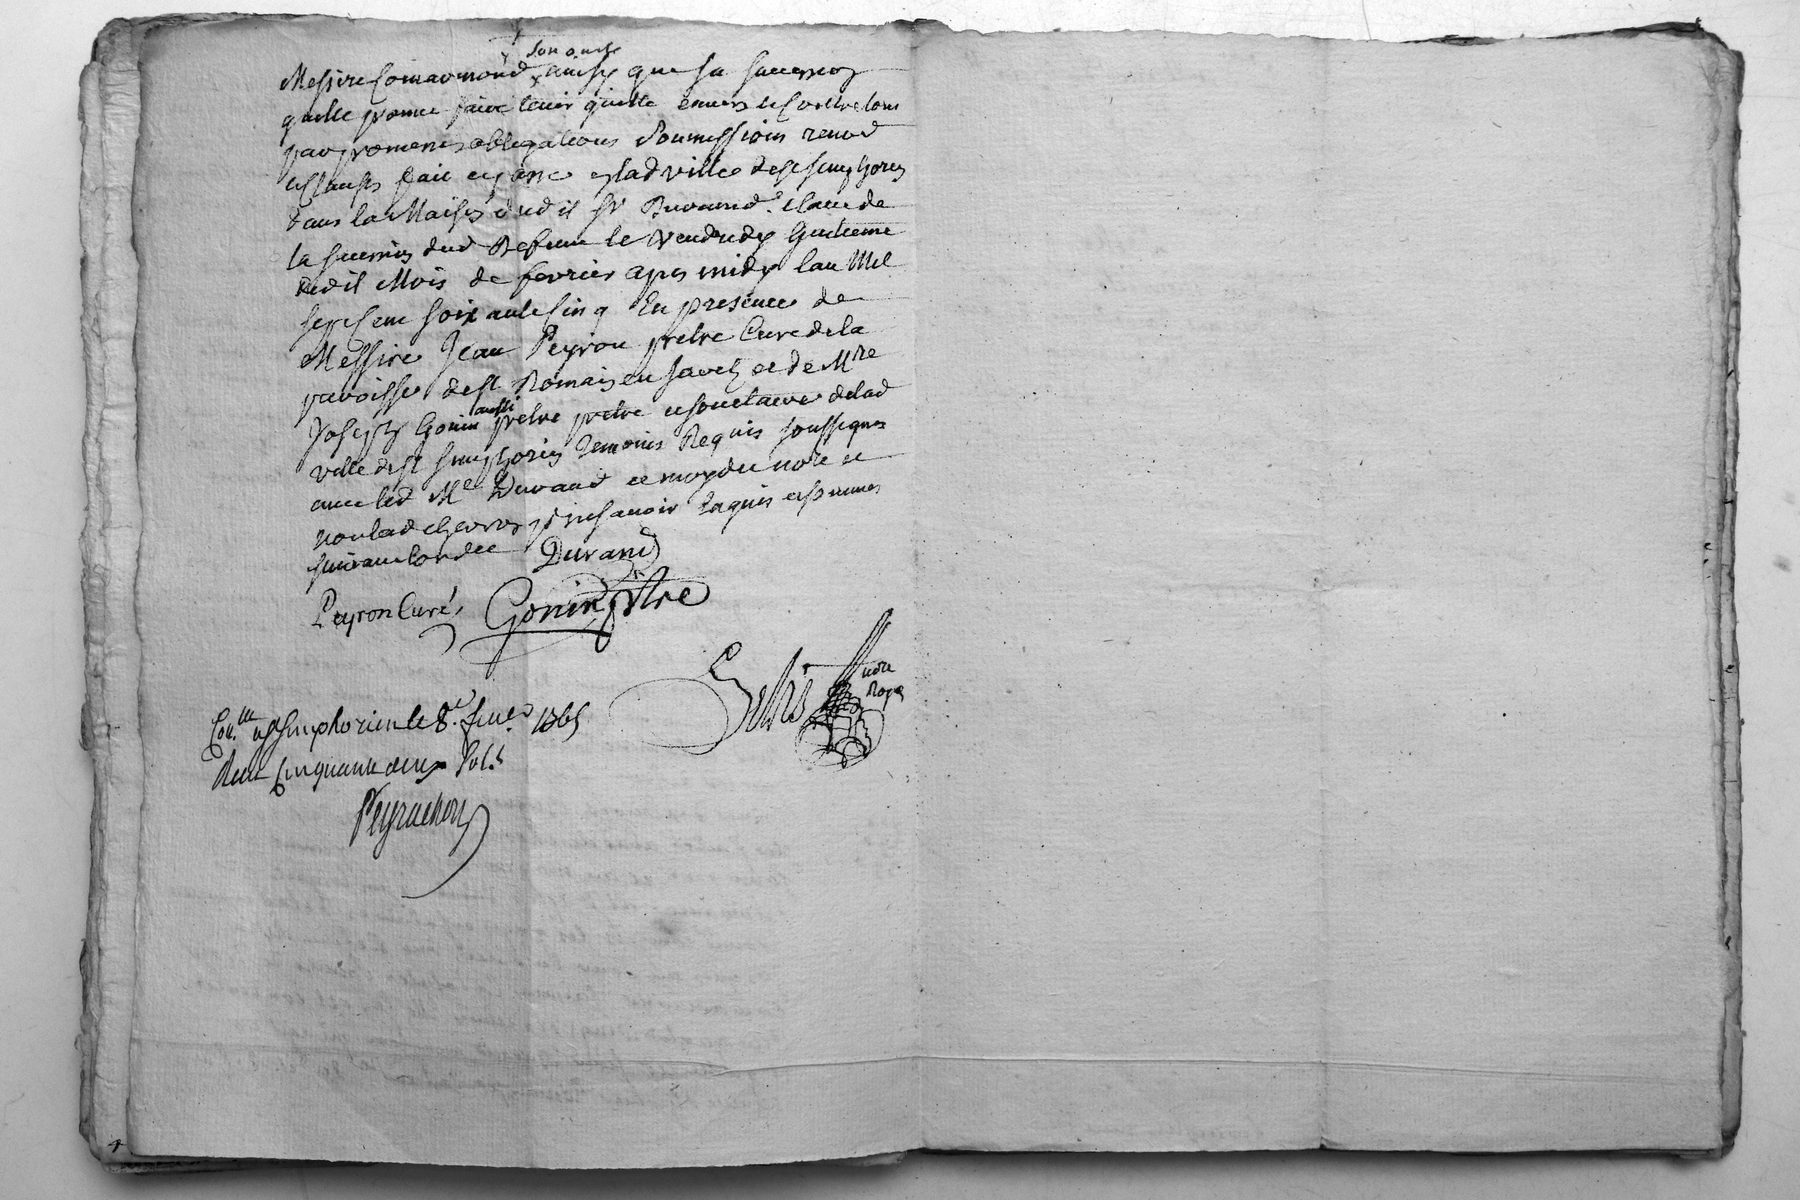 son oncle
Messire Comarmond ainsy que sa succession
quelle promet faire tenir quitte envers et contre tous
par promesses obligations soumissions renond
et clauses fait et passé en lad ville de st simphorien
dans la Maison dudit sr Durand
le Vendredy huitieme
dudit Mois de fevrier apres midy l'an Mil
sept cent soixante cinq En presence de
Messire Jean Peyron pretre Curé de la
paroisse de st Romain en Jarest et de Mre
Joseph Gonin aussi pretre et societaire de lad
ville de st simphorien temoins Requis soussignes
avec led Me Durand et moydit notre et
non lad pour ne sçavoir Enquis et sommes
suivant lordce Durand
Peyron Curé Gonin ptre
notre
Royal
Con.lle a st Simphorien le 8e fevrier 1765
Recu Cinquante deux sols
Peyrachon